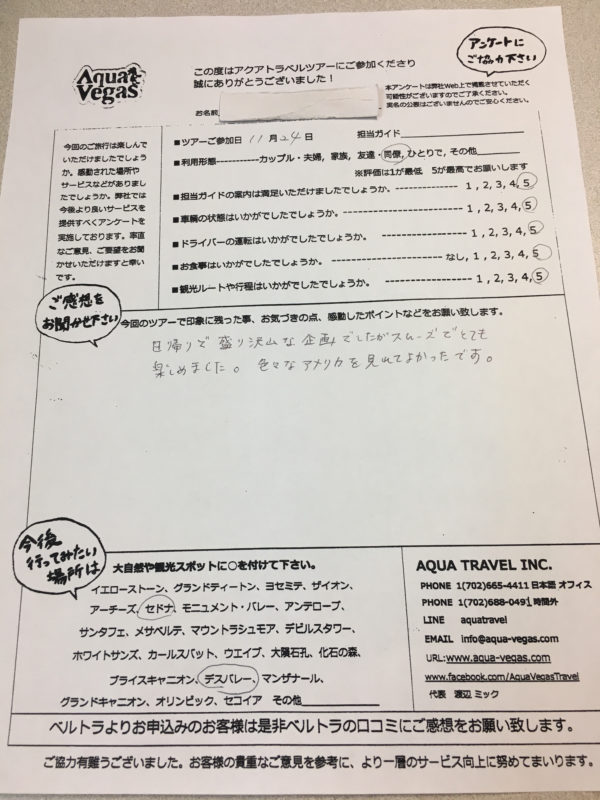 Aqua
Vegas
この度はアクアトラベルツアーにご参加くださり
誠にありがとうございました！
アンケートに
ご協力下さい
お名前
本アンケートは弊社Web上で掲載させていただく
可能性がございますのでご了承ください。
実名の公表はございませんのでご安心ください。
今回のご旅行は楽しんで
いただけましたでしょう
か。感動された場所や
サービスなどがありまし
たでしょうか。弊社では
今後より良いサービスを
提供すべくアンケートを
実施しております。率直
なご意見、ご要望をお聞
かせいただけますと幸い
です。
■ツアーご参加日 11月24日 担当ガイド
■利用形態------------カップル・夫婦, 家族, 友達・同僚, ひとりで, その他
※評価は1が最低 5が最高でお願いします
■担当ガイドの案内は満足いただけましたでしょうか。 ---------------- 1, 2, 3, 4, 5
■車輌の状態はいかがでしたでしょうか。---------------------------- 1, 2, 3, 4, 5
■ドライバーの運転はいかがでしたでしょうか。 -------------------- 1, 2, 3, 4, 5
■お食事はいかがでしたでしょうか。 ------------------------- なし, 1, 2, 3, 4, 5
■観光ルートや行程はいかがでしたでしょうか。-------------------- 1, 2, 3, 4, 5
ご感想を
お聞かせ下さい
今回のツアーで印象に残った事、お気づきの点、感動したポイントなどをお願い致します。
日帰りで盛り沢山な企画でしたがスムーズでとても
楽しめました。色々なアメリカを見れてよかったです。
今後
行ってみたい
場所は
大自然や観光スポットに○を付けて下さい。
イエローストーン、グランドティートン、ヨセミテ、ザイオン、
アーチーズ、セドナ、モニュメント・バレー、アンテロープ、
サンタフェ、メサベルテ、マウントラシュモア、デビルスタワー、
ホワイトサンズ、カールスバット、ウエイブ、大隕石孔、化石の森、
ブライスキャニオン、デスバレー、マンザナール、
グランドキャニオン、オリンピック、セコイア その他
AQUA TRAVEL INC.
PHONE 1(702)665-4411 日本語 オフィス
PHONE 1(702)688-0491 時間外
LINE aquatravel
EMAIL info@aqua-vegas.com
URL:www.aqua-vegas.com
www.facebook.com/AquaVegasTravel
代表 渡辺 ミック
ベルトラよりお申込みのお客様は是非ベルトラの口コミにご感想をお願い致します。
ご協力有難うございました。お客様の貴重なご意見を参考に、より一層のサービス向上に努めてまいります。